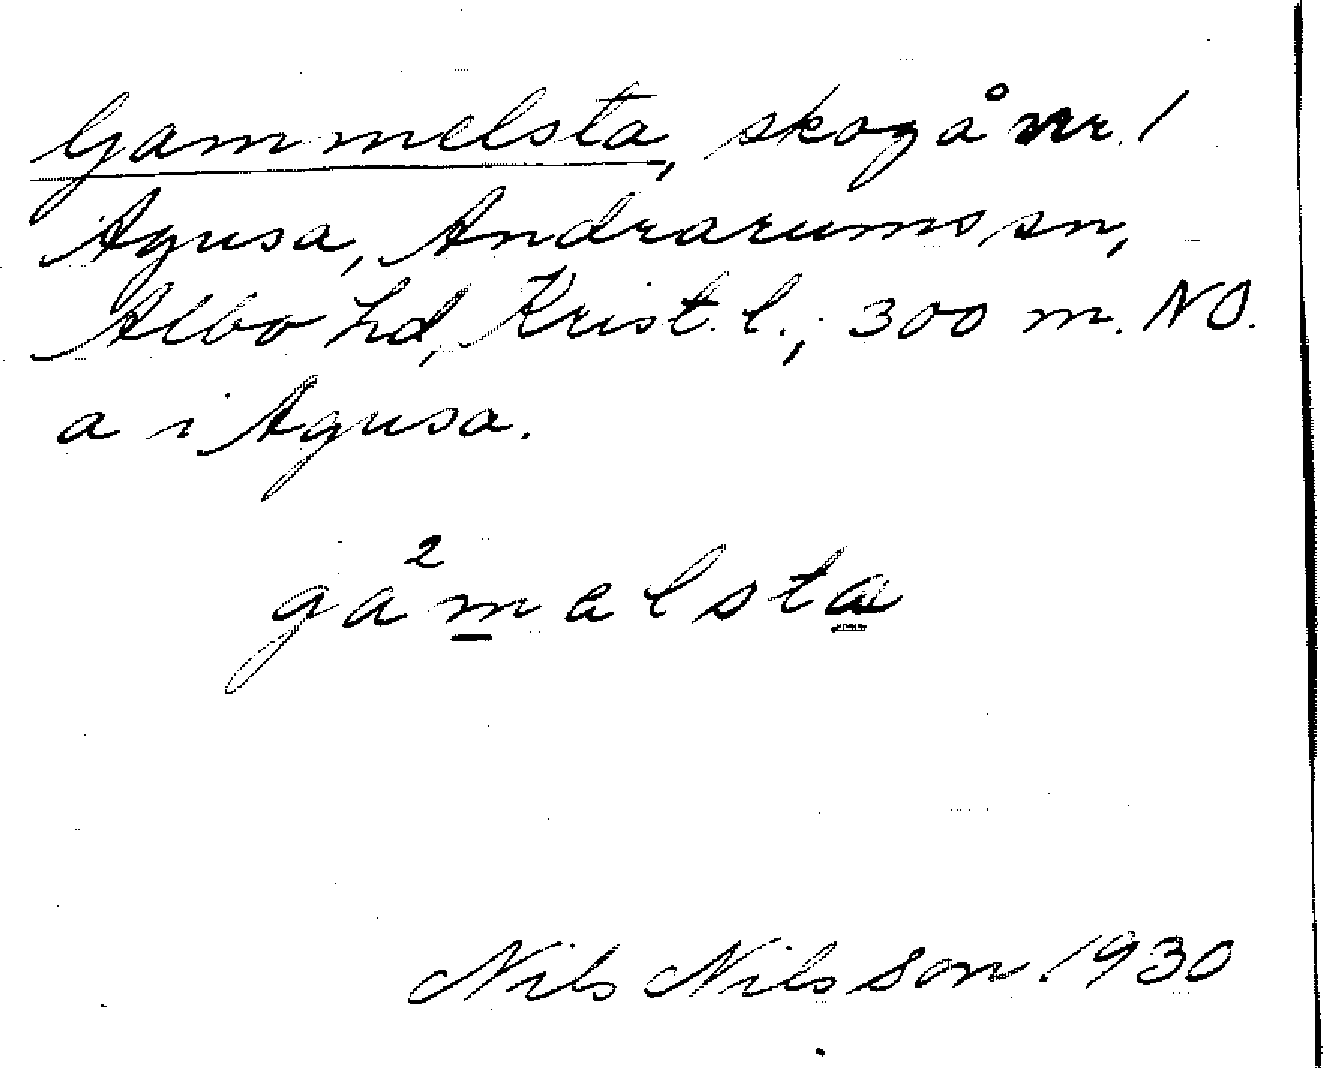 Gammelsta, skog å nr. 1
Agusa, Andrarums sn,
Albo hd, Krist. l., 300 m. NO.
a i Agusa.
ga²malsta
Nils Nilsson 1930